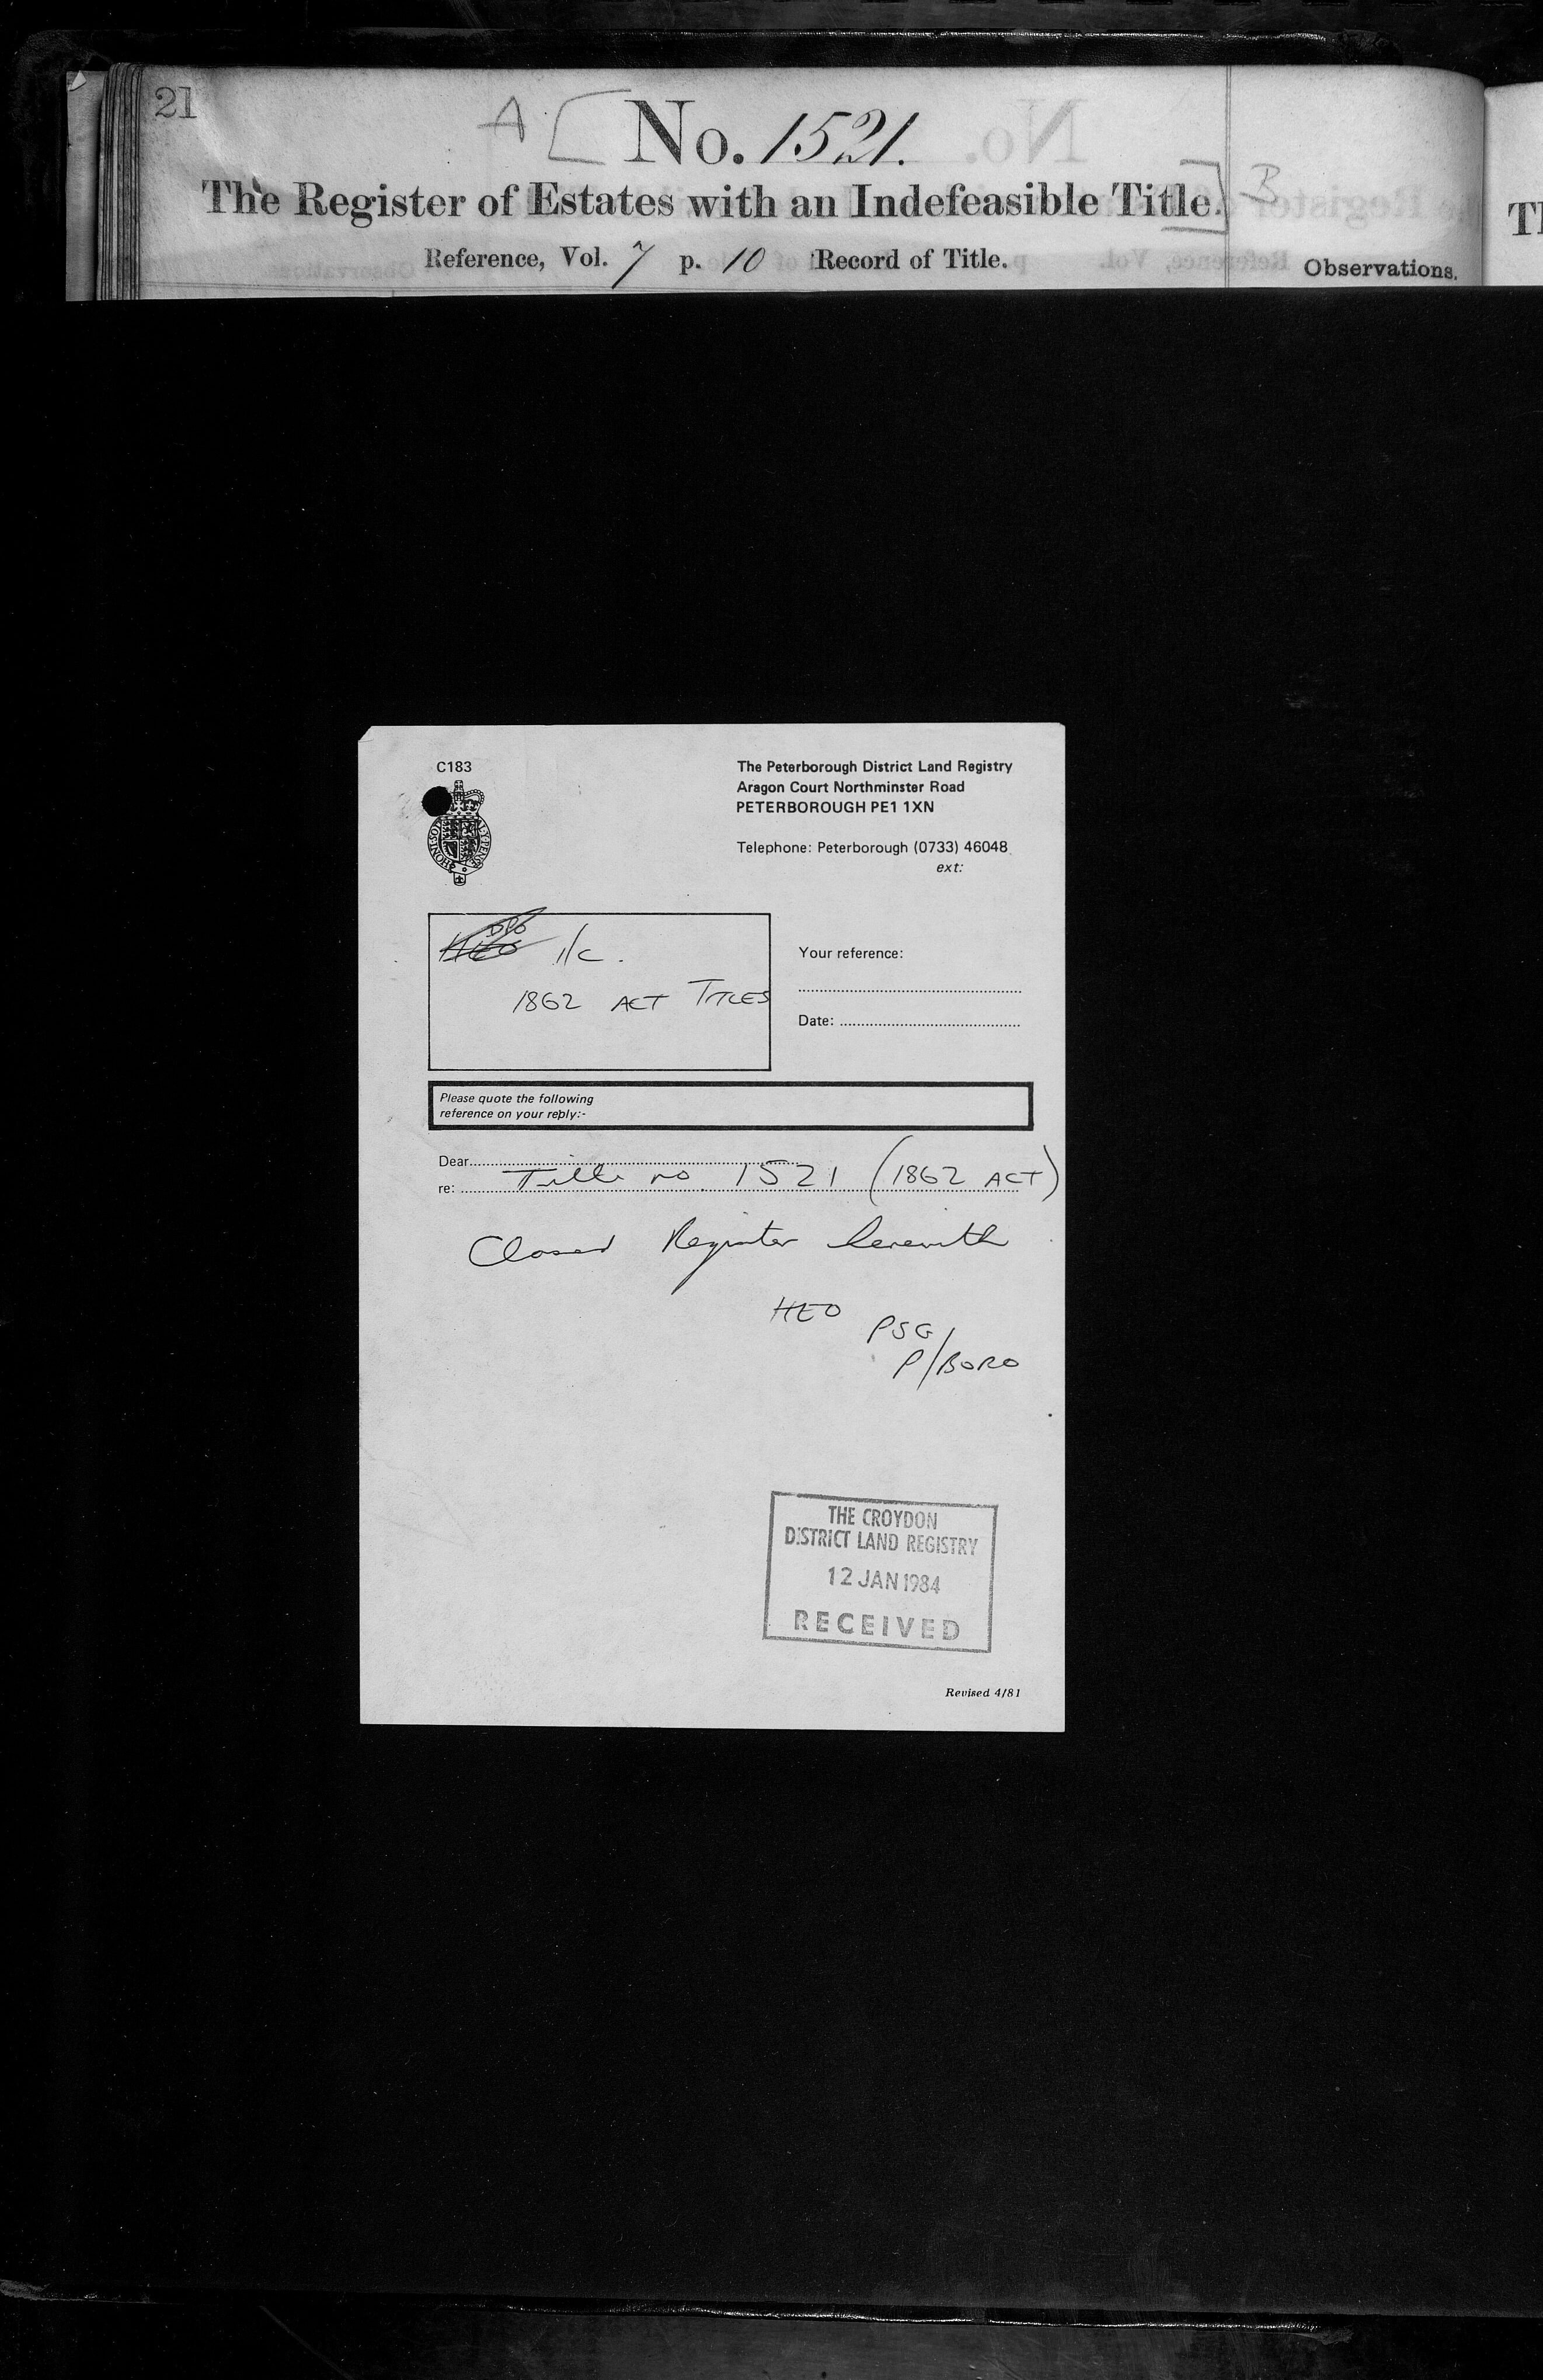 21
A
No. 1521.
The Register of Estates with an Indefeasible Title.
B
Reference, Vol. 7 p. 10 Record of Title.
Observations.
C183
The Peterborough District Land Registry
Aragon Court Northminster Road
PETERBOROUGH PE1 1XN
Telephone: Peterborough (0733) 46048
ext:
HONI·SOIT
Y·PENSE
i/c.
1862 ACT TITLES
Your reference:
Date:
Please quote the following
reference on your reply:-
Dear
re: Title no. 1521 (1862 ACT)
Closed Register herewith
HEO
PSG/
P/BORO
THE CROYDON
DISTRICT LAND REGISTRY
12 JAN 1984
RECEIVED
Revised 4/81